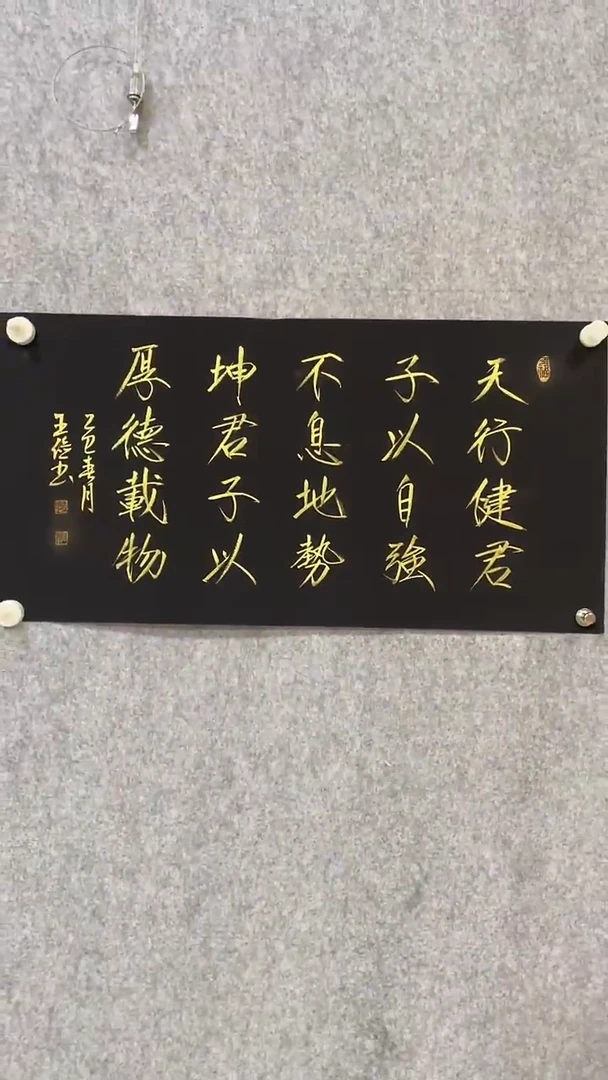 天行健君
子以自強
不息地勢
坤君子以
厚德載物
乙巳春月